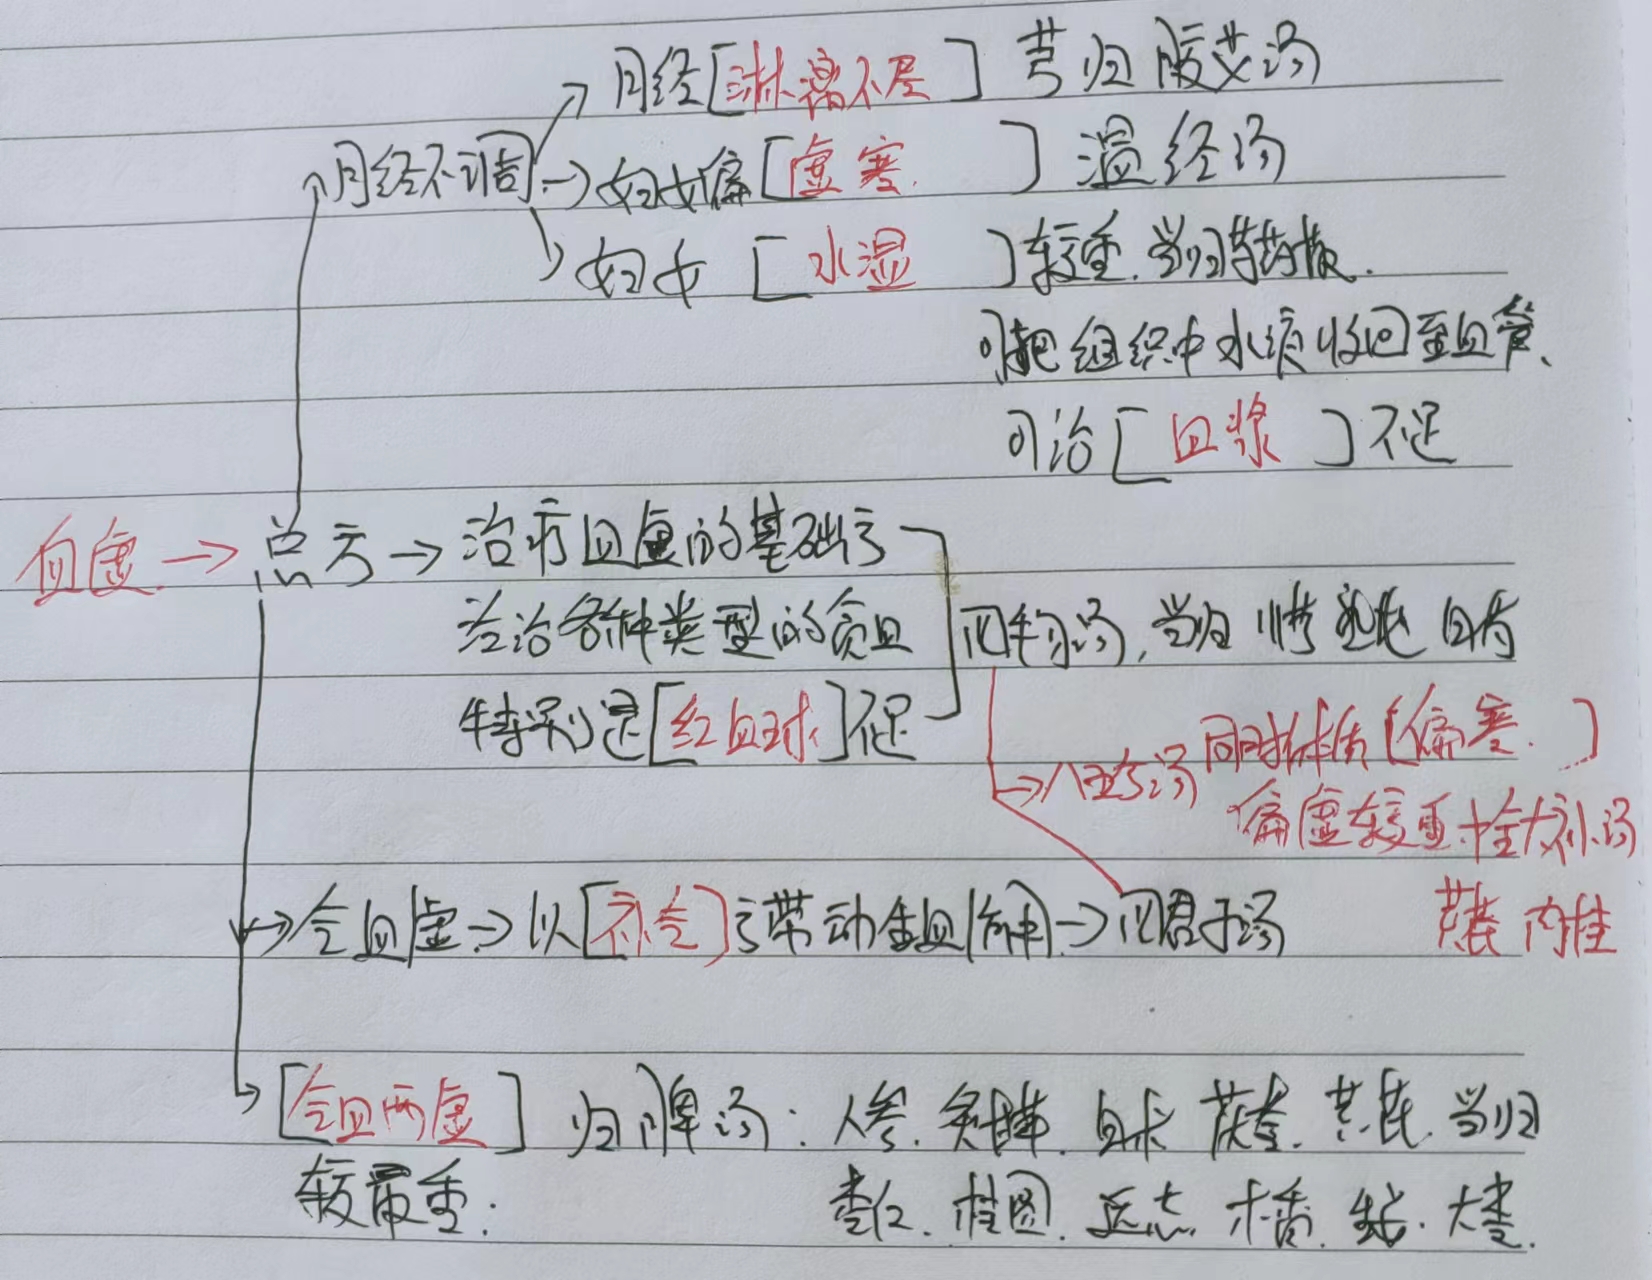 月经[淋漓不尽]芎归胶艾汤
月经不调→妇女偏[虚寒]温经汤
妇女[水湿]较重.当归芍药散.
可把组织中水液收回至血管、
可治[血浆]不足
血虚→总方→治疗血虚的基础方
治各种类型的贫血 四物汤,当归 川芎 熟地 白芍
特别是[红血球]不足
→八珍汤 同时体质[偏寒.]
偏虚较重.十全大补汤
→气血虚→以[补气]方带动生血作用→四君子汤 黄芪 肉桂
[气血两虚]归脾汤:人参.炙甘草.白术 茯苓.黄芪.当归
较严重: 枣仁.桂圆.远志 木香.生姜.大枣.